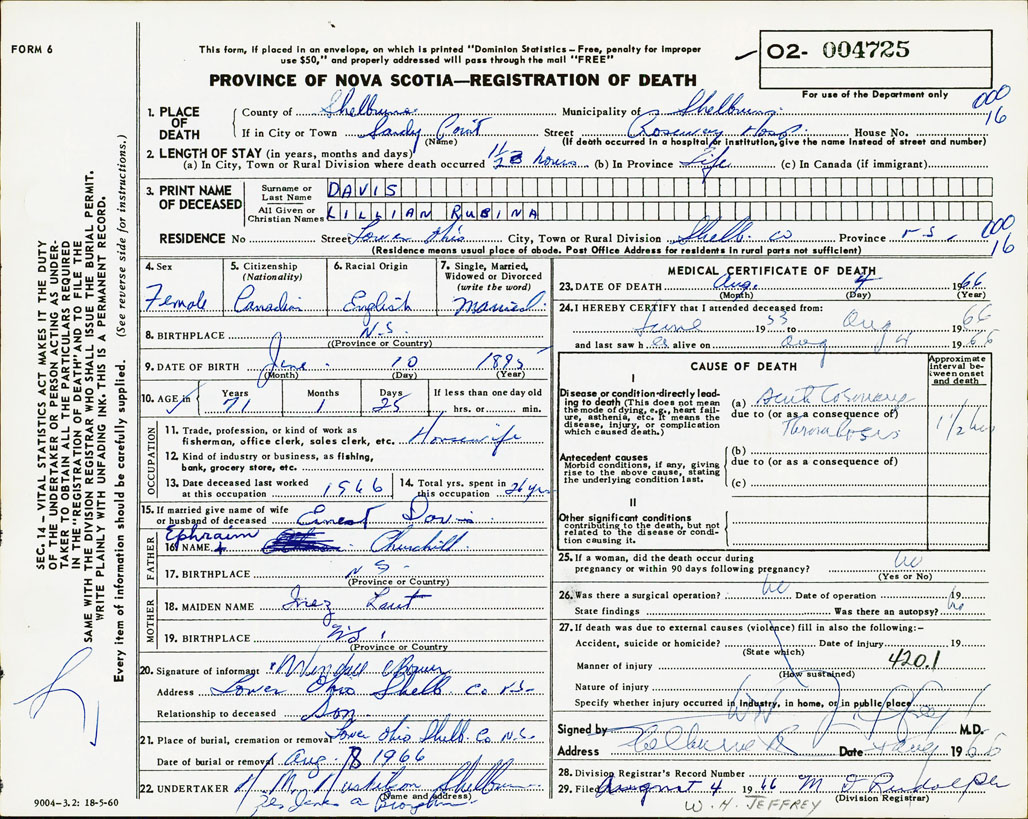 FORM 6
This form, if placed in an envelope, on which is printed "Dominion Statistics – Free, penalty for improper
use $50," and properly addressed will pass through the mail "FREE"
O2- 004725
PROVINCE OF NOVA SCOTIA—REGISTRATION OF DEATH
For use of the Department only
000
16
1. PLACE OF DEATH
County of Shelburne Municipality of Shelburne
If in City or Town Sandy Point Street Roseway Hosp House No.
(Name) (If death occurred in a hospital or institution, give the name instead of street and number)
2. LENGTH OF STAY (in years, months and days)
(a) In City, Town or Rural Division where death occurred hours (b) In Province Life (c) In Canada (if immigrant)
3. PRINT NAME OF DECEASED
Surname or Last Name DAVIS
All Given or Christian Names LILLIAN RUBINA
RESIDENCE No Street Lower Ohio City, Town or Rural Division Shelb. Co Province N.S.
000
16
(Residence means usual place of abode. Post Office Address for residents in rural parts not sufficient)
4. Sex
Female
5. Citizenship
(Nationality)
Canadian
6. Racial Origin
English
7. Single, Married,
Widowed or Divorced
(write the word)
Married
8. BIRTHPLACE N.S.
(Province or Country)
9. DATE OF BIRTH June 10 1895
(Month) (Day) (Year)
10. AGE in
Years 71
Months 1
Days 25
If less than one day old
hrs. or min.
OCCUPATION
11. Trade, profession, or kind of work as
fisherman, office clerk, sales clerk, etc. Housewife
12. Kind of industry or business, as fishing,
bank, grocery store, etc.
13. Date deceased last worked
at this occupation 1966
14. Total yrs. spent in
this occupation 26 yrs
15. If married give name of wife
or husband of deceased Ernest Davis
FATHER
Ephraim
16. NAME Churchill
17. BIRTHPLACE N S
(Province or Country)
MOTHER
18. MAIDEN NAME Inez
19. BIRTHPLACE N S
(Province or Country
20. Signature of informant
Address Lower Ohio Shelb Co N.S-
Relationship to deceased Son
21. Place of burial, cremation or removal Lower Ohio Shelb. Co N.S.
Date of burial or removal Aug 8 1966
22. UNDERTAKER Shelburne
(Name and address)
9004-3.2: 18-5-60
MEDICAL CERTIFICATE OF DEATH
23. DATE OF DEATH Aug. 4 1966
(Month) (Day) (Year)
24. I HEREBY CERTIFY that I attended deceased from:
June 1955 to Aug 1966
and last saw h er alive on Aug 1966
CAUSE OF DEATH
Approximate
interval be-
tween onset
and death
I
Disease or condition directly lead-
ing to death (This does not mean
the mode of dying, e.g., heart fail-
ure, asthenia, etc. It means the
disease, injury, or complication
which caused death.)
(a) Acute Coronary
due to (or as a consequence of)
Thrombosis
1 1/2 hrs
Antecedent causes
Morbid conditions, if any, giving
rise to the above cause, stating
the underlying condition last.
(b)
due to (or as a consequence of)
(c)
II
Other significant conditions
contributing to the death, but not
related to the disease or condi-
tion causing it.
25. If a woman, did the death occur during
pregnancy or within 90 days following pregnancy? no
(Yes or No)
26. Was there a surgical operation? no Date of operation 19
State findings Was there an autopsy? no
27. If death was due to external causes (violence) fill in also the following:-
Accident, suicide or homicide? Date of injury 19
(State which)
Manner of injury 420.1
(How sustained)
Nature of injury
Specify whether injury occurred in industry, in home, or in public place
Signed by M.D.
Address Shelburne Date 4 Aug 1966
28. Division Registrar's Record Number
29. Filed August 4 1966
(Division Registrar)
W. H. JEFFREY
SEC. 14 – VITAL STATISTICS ACT MAKES IT THE DUTY
OF THE UNDERTAKER OR PERSON ACTING AS UNDER-
TAKER TO OBTAIN ALL THE PARTICULARS REQUIRED
IN THE "REGISTRATION OF DEATH" AND TO FILE THE
SAME WITH THE DIVISION REGISTRAR WHO SHALL ISSUE THE BURIAL PERMIT.
WRITE PLAINLY WITH UNFADING INK. THIS IS A PERMANENT RECORD.
Every item of information should be carefully supplied. (See reverse side for instructions.)